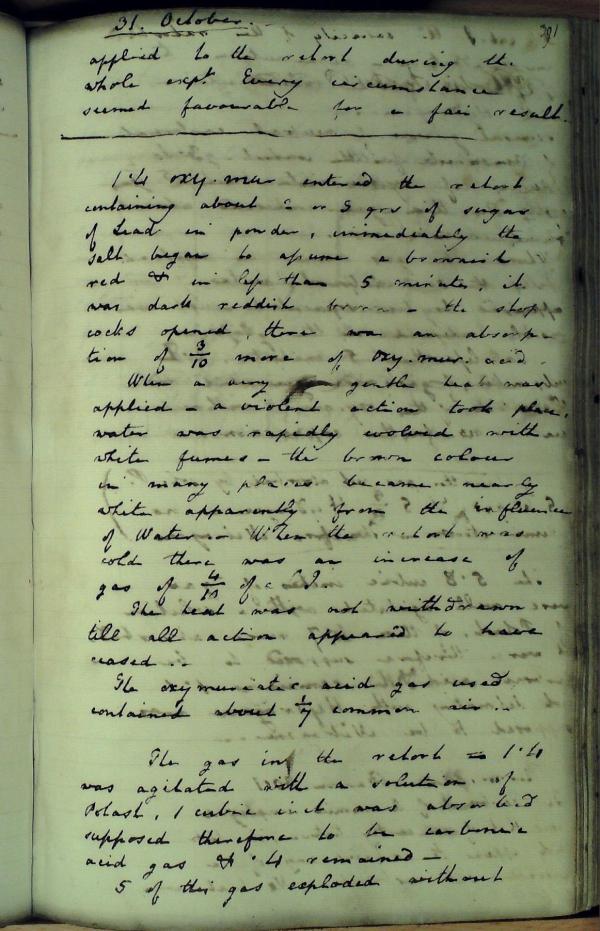 31. October.
391
applied to the retort during the
whole expt. Every circumstance
seemed favourable for a fair result.
1.4 oxy. mur entered the retort
containing about 2 or 3 grs of sugar
of Lead in powder, immediately the
salt began to assume a brownish
red & in less than 5 minutes, it
was dark reddish brown - the stop
cocks opened, there was an absorp
tion of 3/10 more of oxy. mur. acid.
When a very gentle heat was
applied - a violent action took place,
water was rapidly evolved with
white fumes - the brown colour
in many places became nearly
white apparently from the influence
of Water .- When the retort was
cold there was an increase of
gas of 4/10 of c I.
The heat was not withdrawn
till all action appeared to have
ceased ..
The oxymuriatic acid gas used
contained about 1/7 common air ..
The gas in the retort = 1.4
was agitated with a solution of
Potash, 1 cubic inch was absorbed
supposed therefore to be carbonic
acid gas & .4 remained -
5 of this gas exploded without